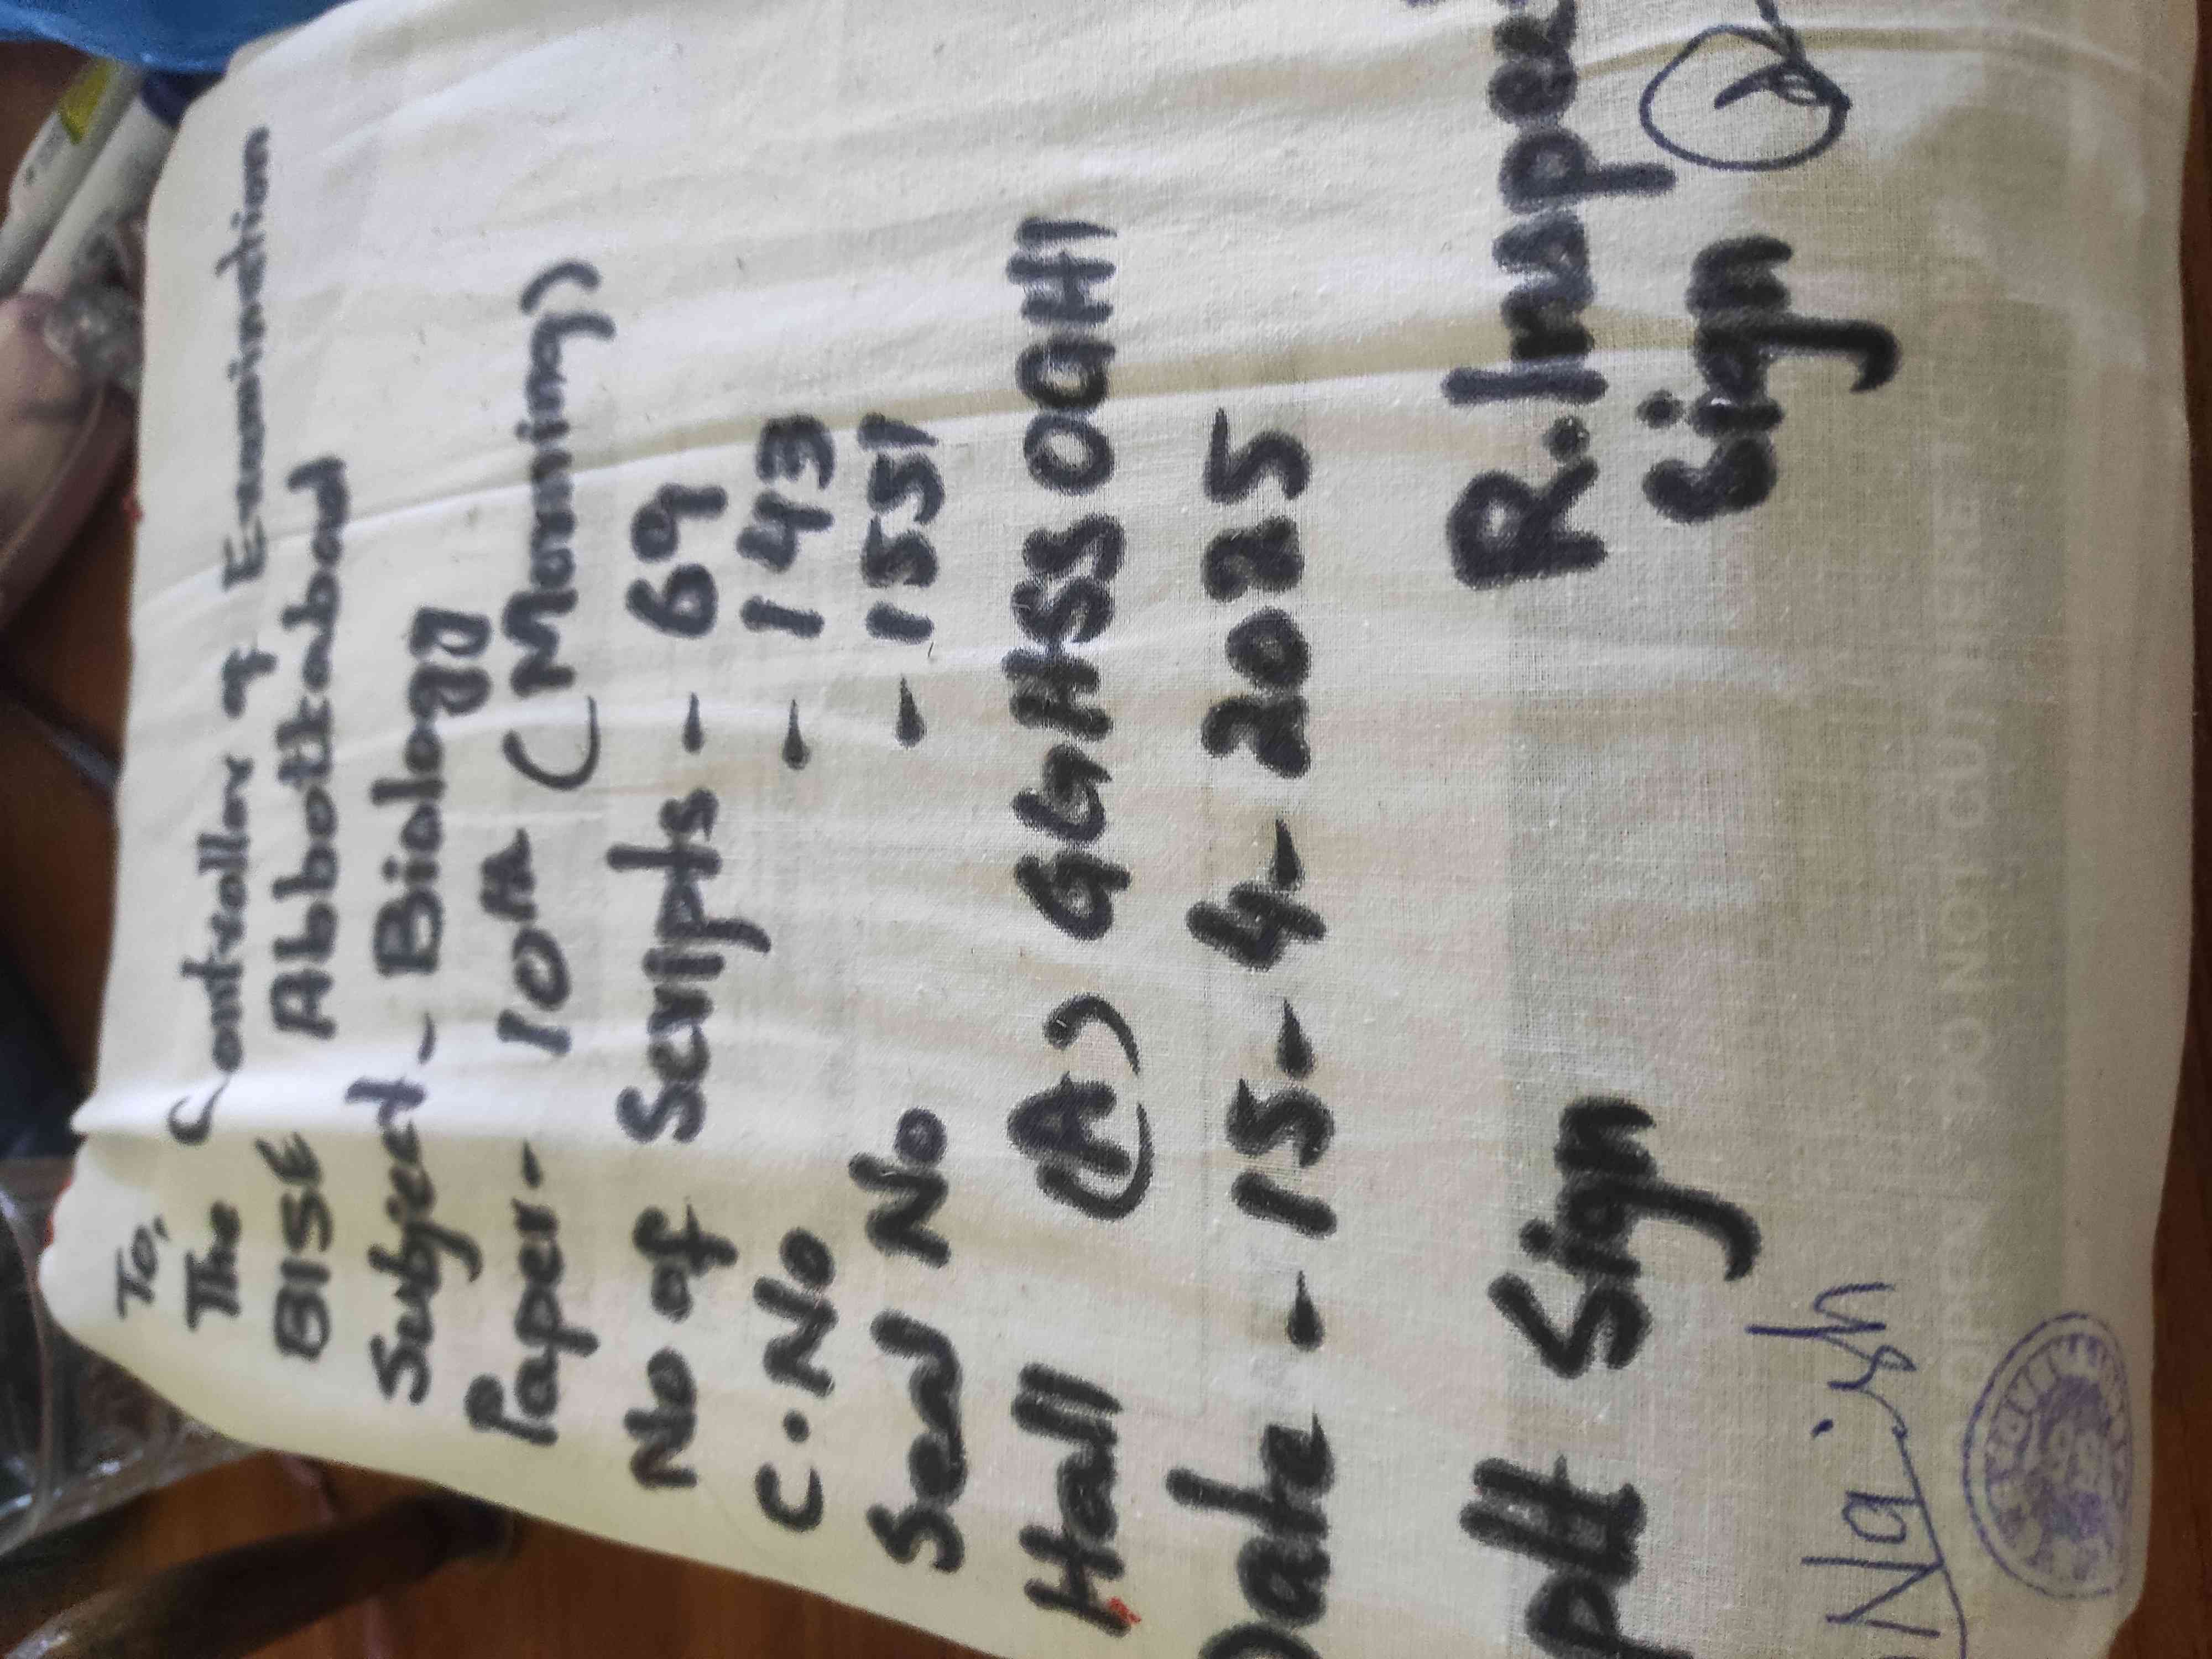 To,
The Controller of Examination
BISE Abbottabad
Subject - Biology
Paper - 10th (Morning)
No of Scripts - 69
C. No No - 143
Seal No - 1551
Hall (A) GGHSS OGHI
Date - 15-4-2025
R. Inspe
Sign
ptt Sign
OPEN DO NOT CUT HERE TO OP